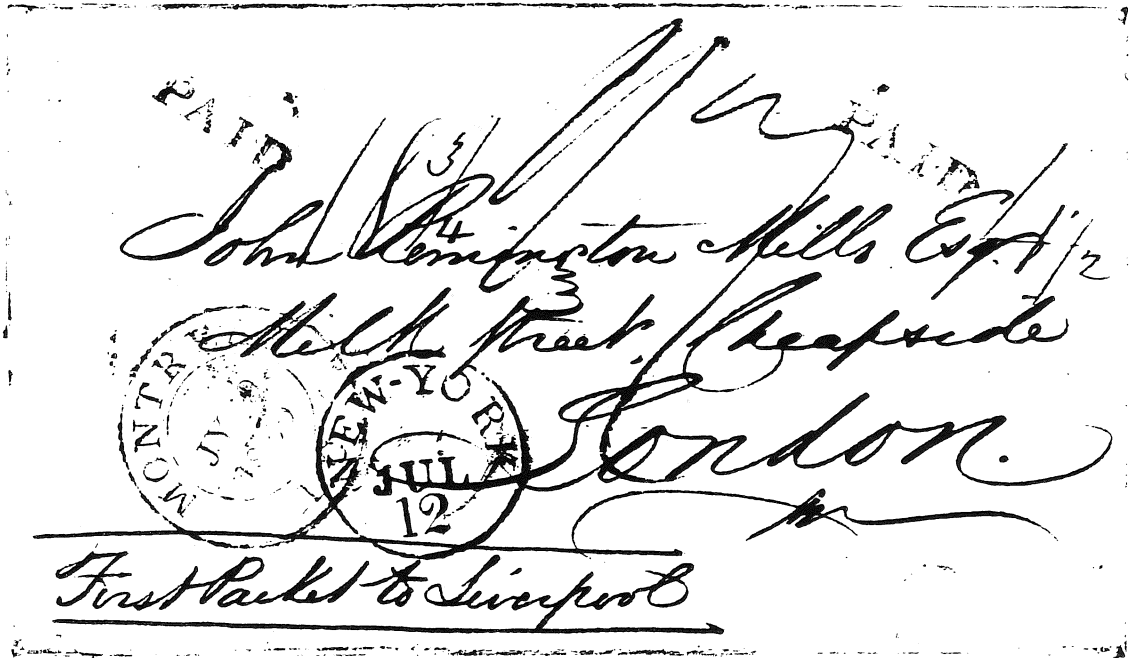 PAID PAID
John Remington Mills Esqr
1/2
Milk Street, Cheapside
London.
MONTR
JY
NEW-YORK
JUL
12
First Packet to Liverpool